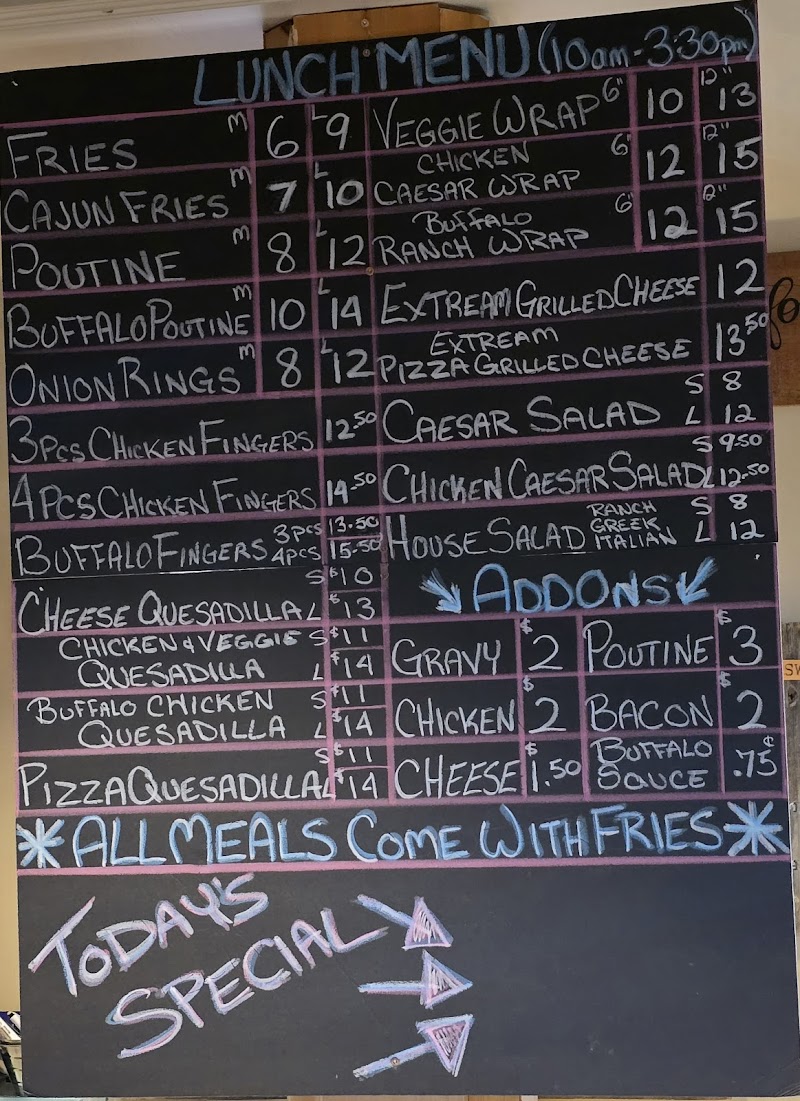 LUNCH MENU (10am - 3:30pm)
FRIES M 6 L 9
CAJUN FRIES M 7 L 10
POUTINE M 8 L 12
BUFFALO POUTINE M 10 L 14
ONION RINGS M 8 L 12
3 PCS CHICKEN FINGERS 12.50
4 PCS CHICKEN FINGERS 14.50
BUFFALO FINGERS 3 PCS 13.50
4 PCS 15.50
CHEESE QUESADILLA S $10
L $13
CHICKEN & VEGGIE S $11
QUESADILLA L $14
BUFFALO CHICKEN S $11
QUESADILLA L $14
PIZZA QUESADILLA S $11
L $14
VEGGIE WRAP 6" 10 12" 13
CHICKEN
CAESAR WRAP 6" 12 12" 15
BUFFALO
RANCH WRAP 6" 12 12" 15
EXTREAM GRILLED CHEESE 12
EXTREAM
PIZZA GRILLED CHEESE 13.50
CAESAR SALAD S 8
L 12
CHICKEN CAESAR SALAD S 9.50
L 12.50
HOUSE SALAD RANCH S 8
GREEK
ITALIAN L 12
ADDONS
GRAVY $2 POUTINE $3
CHICKEN $2 BACON $2
CHEESE $1.50 BUFFALO
SAUCE .75¢
*ALL MEALS COME WITH FRIES*
TODAY'S
SPECIAL